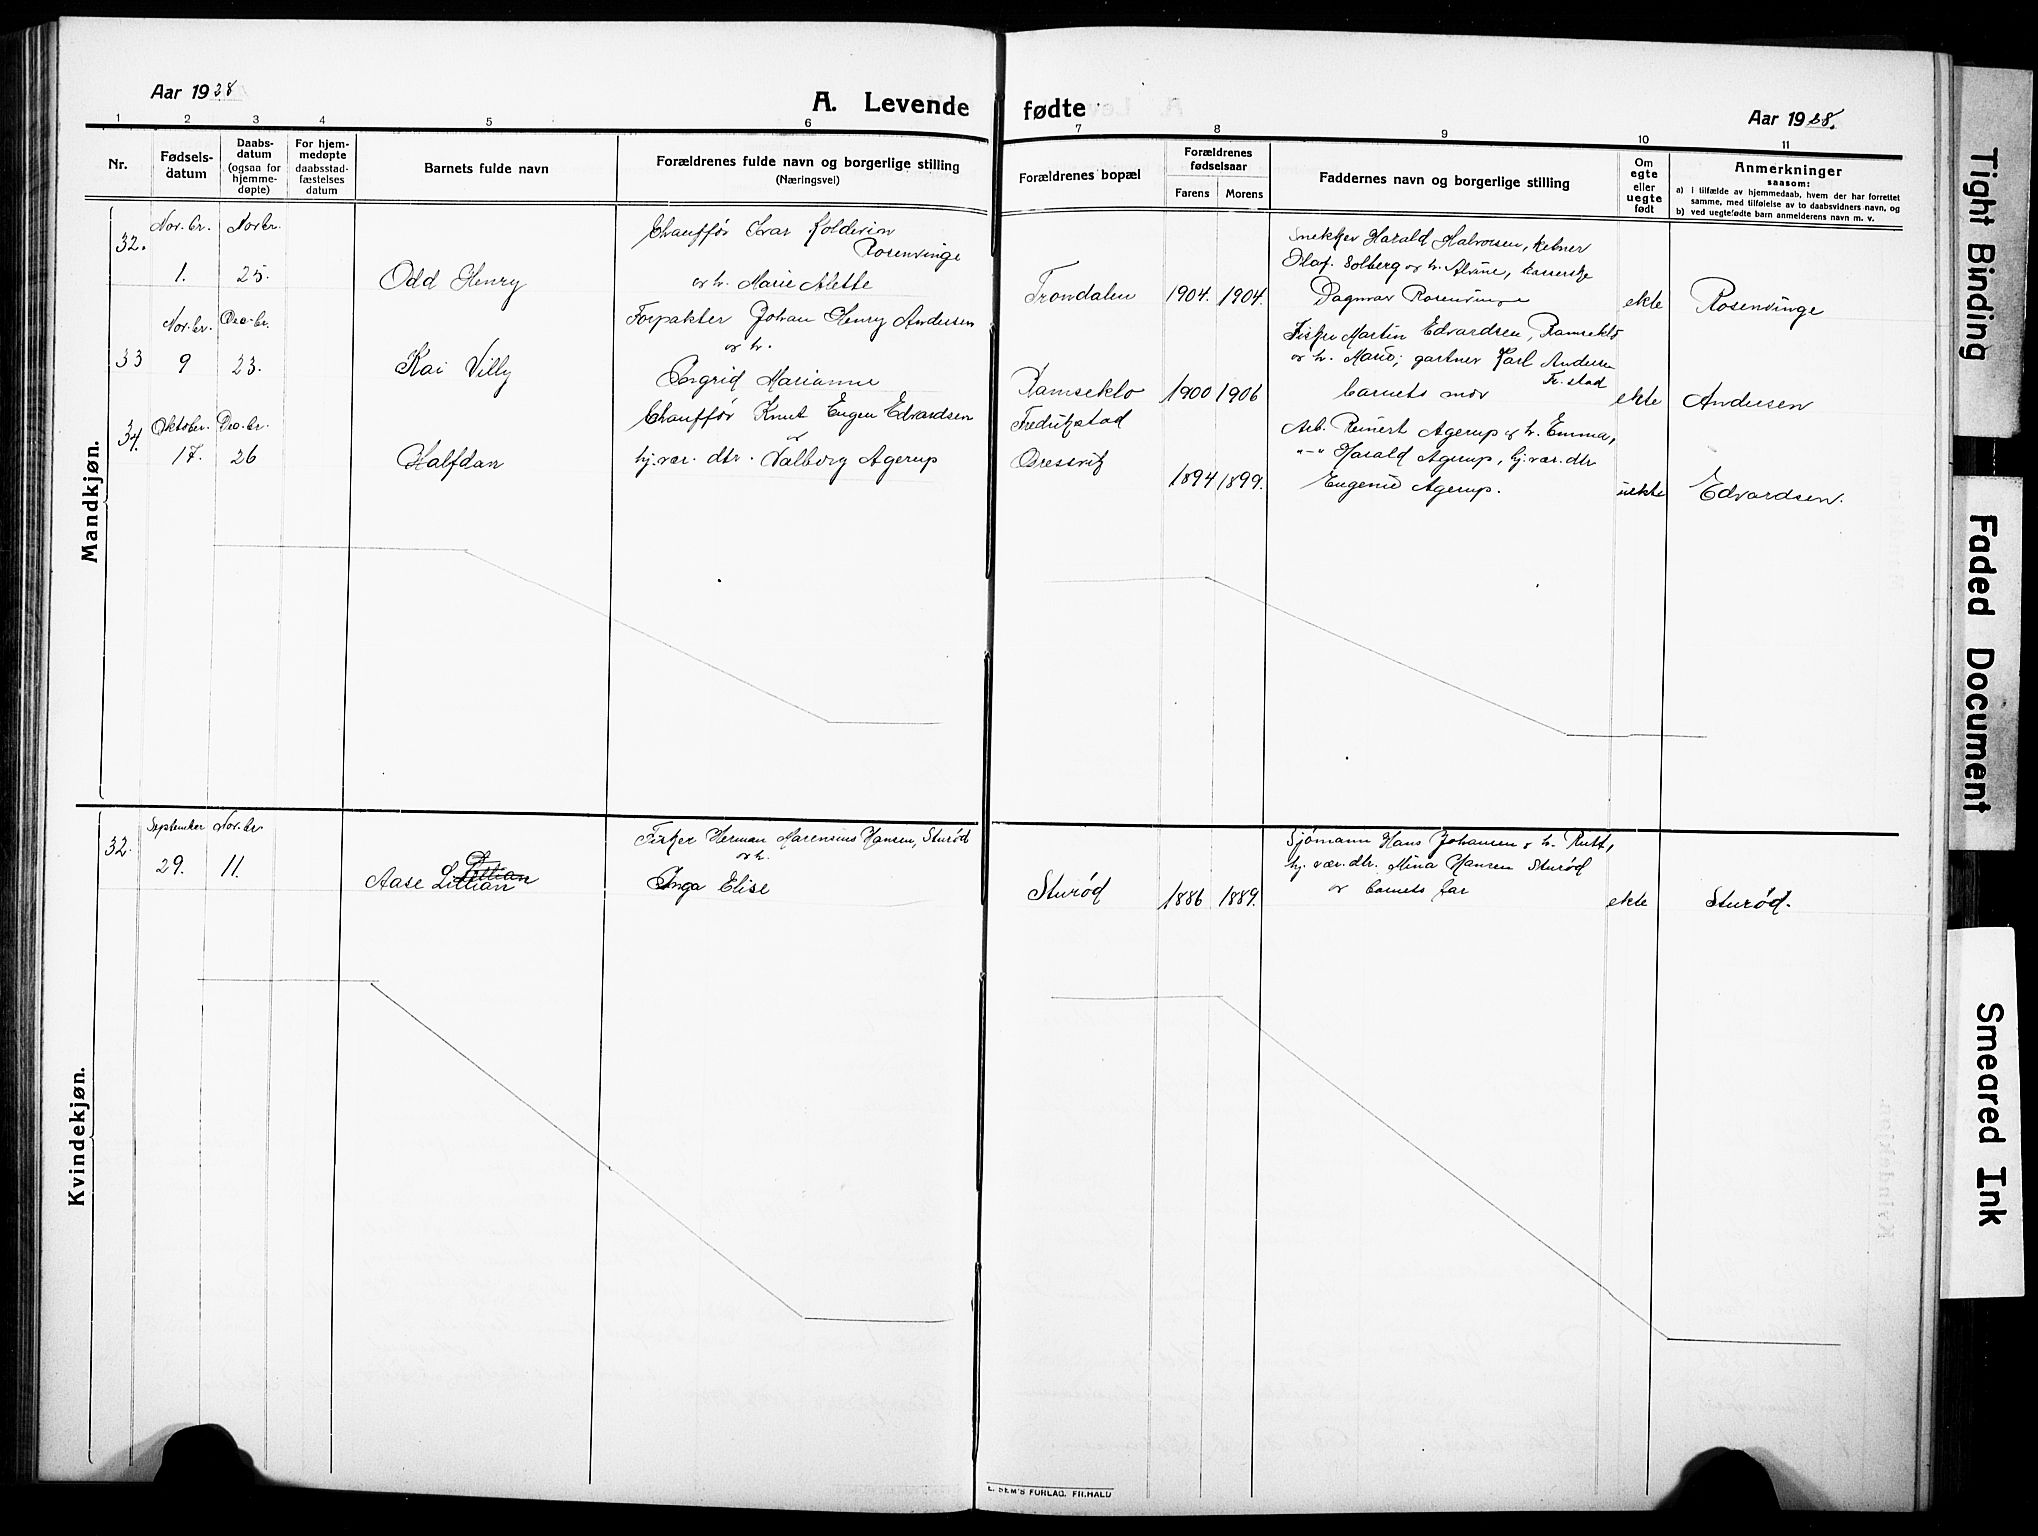 Aar 1928
A. Levende
fødte
Aar 1928.
1 2 3 4 5 6 7 8 9 10 11
Nr.
Fødsels-
datum
Daabs-
datum
(ogsaa for
hjemme-
døpte)
For hjem-
medøpte
daabsstad-
fæstelses
datum
Barnets fulde navn
Forældrenes fulde navn og borgerlige stilling
(Næringsvei)
Forældrenes bopæl
Forældrenes
fødselsaar
Farens Morens
Faddernes navn og borgerlige stilling
Om
egte
eller
uegte
født
Anmerkninger
saasom:
a) i tilfælde av hjemmedaab, hvem der har forrettet
samme, med tilføielse av to daabsvidners navn, og
b) ved uegtefødte barn anmelderens navn m. v.
Mandkjøn.
32.
Nov.br.
1.
Novbr.
25.
Odd Henry
Chauffør Ivar Koldevin
Rosenvinge
og h. Marie Alette
Trondalen
1904. 1904.
Snekker Harald Halvorsen, kelner
Olaf Solberg og h. Alvine, kasserske
Dagmar Rosenvinge
ekte
Rosenvinge
33
Nov.br.
9
Dec.br.
23.
Kai Villy
Forpakter Johan Henry Andersen
og h.
Ingrid Marianne
Ramseklo
1900 1906
Fisker Martin Edvardsen, Ramseklo
og h. Marie; gartner Karl Andersen
Fr.stad
barnets mor
ekte
Andersen
34.
Oktober.
17.
Dec.br.
26
Halfdan
Chauffør Knut Eugen Edvardsen
og
hj.vær. dtr. Valborg Agerup
Fredrikstad
Oresvik
1894 1899.
Arb. Reinert Agerup og h. Emma,
"-" Harald Agerup, hj.vær.dtr
Eugenie Agerup.
uekte
Edvardsen.
Kvindekjøn.
32.
September
29.
Nov.br
11.
Lillian
Aase Lillian
Fisker Herman Marensius Hansen, Sturød
og h.
Inga Elise
Sturød
1886 1889.
Sjømann Hans Johansen og h. Rutt,
hj. vær. dtr. Mina Hansen Sturød
og barnets far
ekte
Sturød.
E. SEM'S FORLAG, FR.HALD
Tight Binding
Faded Document
Smeared Ink